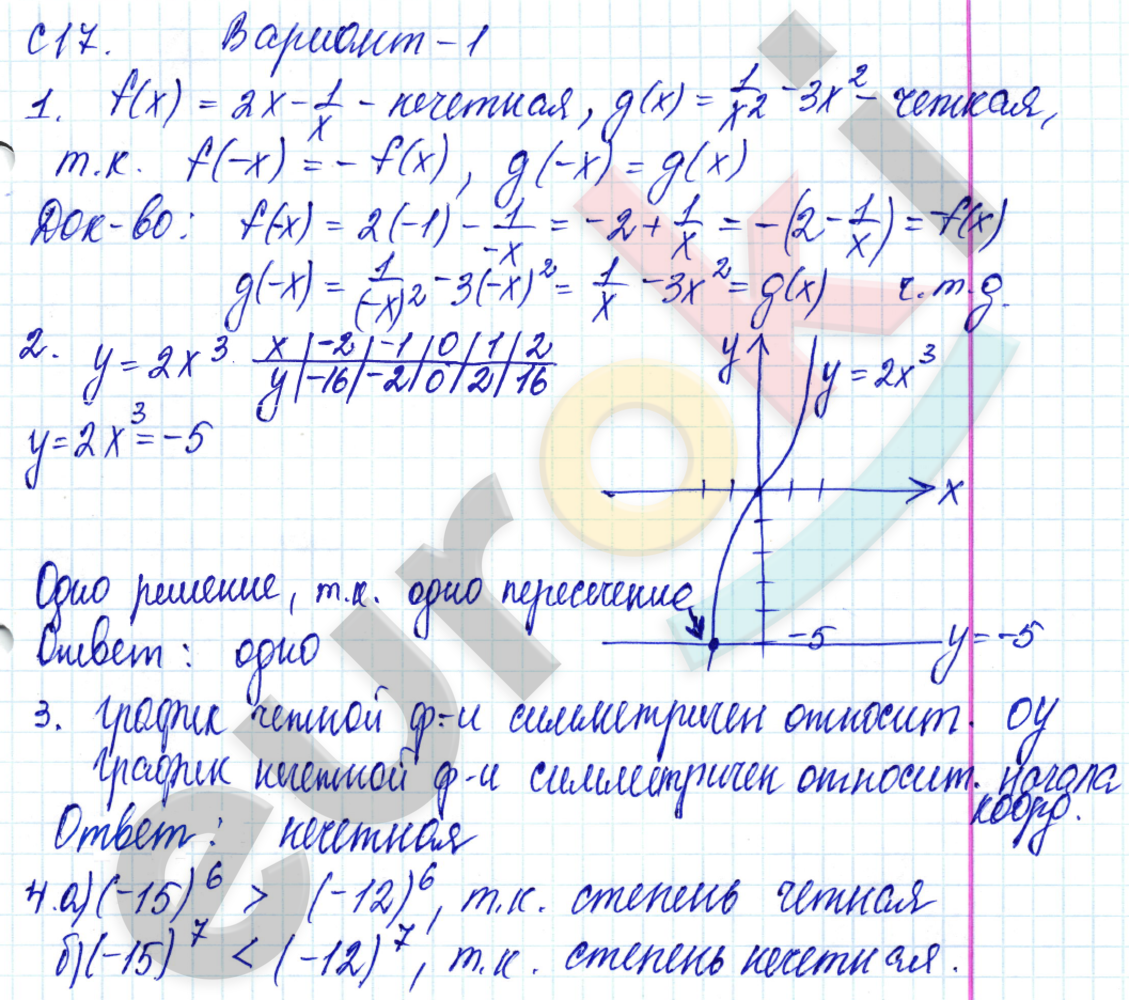 С17. Вариант-1
1. f(x) = 2x - 1/x - нечетная, g(x) = 1/x² - 3x² - четная,
т.к. f(-x) = - f(x), g(-x) = g(x)
Док-во: f(-x) = 2(-1) - 1/-x = -2 + 1/x = -(2 - 1/x) = -f(x)
g(-x) = 1/(-x)² - 3(-x)² = 1/x - 3x² = g(x) ч.т.д.
2. y = 2x³ x | -2 | -1 | 0 | 1 | 2
y | -16 | -2 | 0 | 2 | 16
y = 2x³ = -5
y
y = 2x³
x
Одно решение, т.к. одно пересечение
-5 y = -5
Ответ: одно
3. График четной ф-и симметричен относит. OY
График нечетной ф-и симметричен относит. начала
коорд.
Ответ: нечетная
4. а) (-15)⁶ > (-12)⁶, т.к. степень четная
б) (-15)⁷ < (-12)⁷, т.к. степень нечетная.
euroki